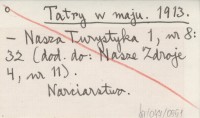 Tatry w maju. 1913.
– Nasza Turystyka 1, nr 8:
32 (dod. do: Nasze Zdroje
4, nr 11).
Narciarstwo.